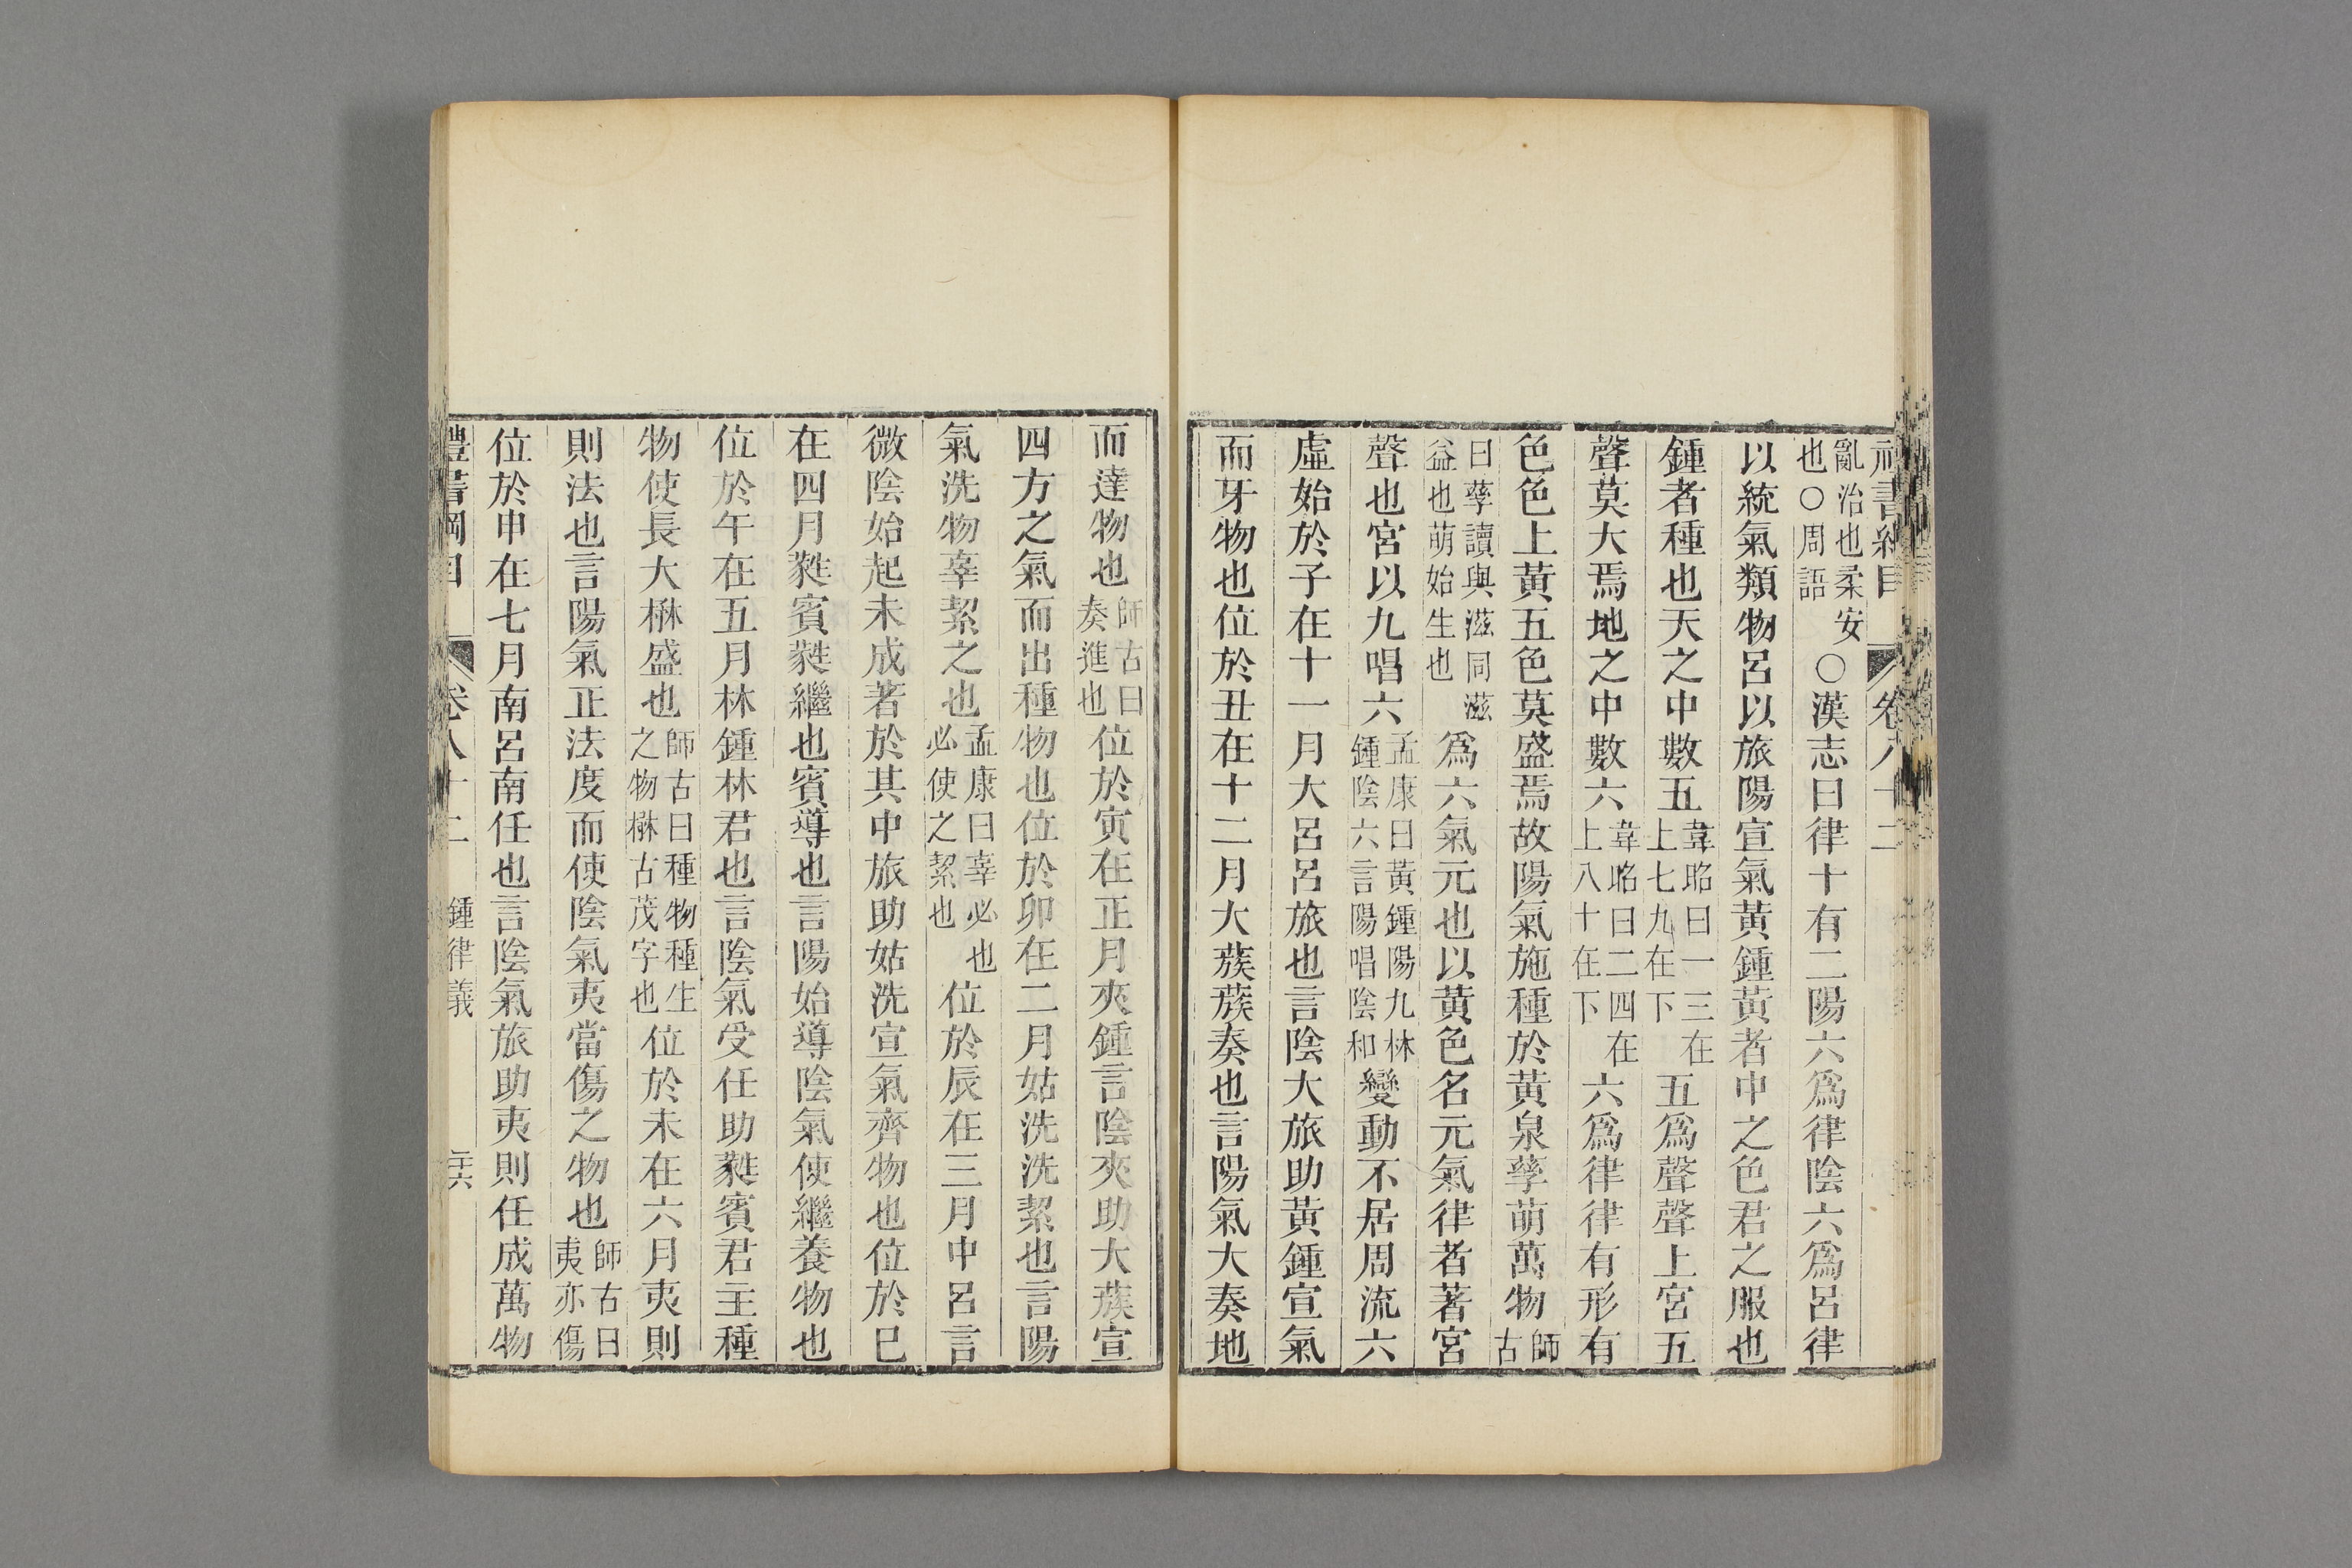 亂治也柔安也○周語○漢志曰律十有二陽六爲律陰六爲呂律
以統氣類物呂以旅陽宣氣黃鍾黃者中之色君之服也
鍾者種也天之中數五韋昭曰一三在上七九在下五爲聲聲上宮五
聲莫大焉地之中數六韋昭曰二四在上八十在下六爲律律有形有
色色上黃五色莫盛焉故陽氣施種於黃泉孳萌萬物師古
曰孳讀與滋同滋益也萌始生也爲六氣元也以黃色名元氣律者著宮
聲也宮以九唱六孟康曰黃鍾陽九林鍾陰六言陽唱陰和變動不居周流六
虛始於子在十一月大呂呂旅也言陰大旅助黃鍾宣氣
而牙物也位於丑在十二月大蔟蔟奏也言陽氣大奏地
而達物也師古曰奏進也位於寅在正月夾鍾言陰夾助大蔟宣
四方之氣而出種物也位於卯在二月姑洗洗絜也言陽
氣洗物辜絜之也孟康曰辜必也必使之絜也位於辰在三月中呂言
微陰始起未成著於其中旅助姑洗宣氣齊物也位於巳
在四月蕤賓蕤繼也賓導也言陽始導陰氣使繼養物也
位於午在五月林鍾林君也言陰氣受任助蕤賓君主種
物使長大楙盛也師古曰種物種生之物楙古茂字也位於未在六月夷則
則法也言陽氣正法度而使陰氣夷當傷之物也師古曰夷亦傷
位於申在七月南呂南任也言陰氣旅助夷則任成萬物
禮書綱目 卷八十二 鍾律義 二十六